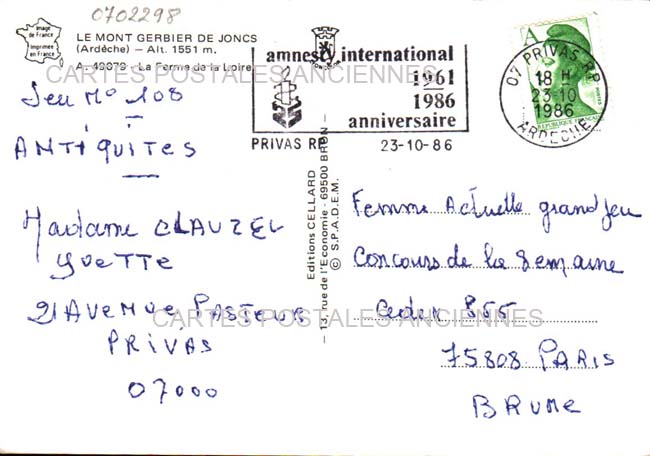 0702298
Image
de France
Imprimée
en France
LE MONT GERBIER DE JONCS
(Ardèche) – Alt. 1551 m.
A. 49079 - La Ferme de la Loire
CARTES POSTALES ANCIENNES
Jeu N° 108
ANTIQUITES
Madame CLAUZEL
YVETTE
21 AVENUE PASTEUR
PRIVAS
07000
amnesty international
1961
1986
anniversaire
PRIVAS RP 23-10-86
Editions CELLARD
— 13, rue de l'Economie - 69500 BRON —
© S.P.A.D.E.M.
A
RÉPUBLIQUE FRANÇAISE
07 PRIVAS R.P.
18 H
23-10
1986
ARDECHE
Femme Actuelle grand jeu
Concours de la Semaine
Cedex 855
75808 PARIS
BRUNE
CARTES POSTALES ANCIENNES